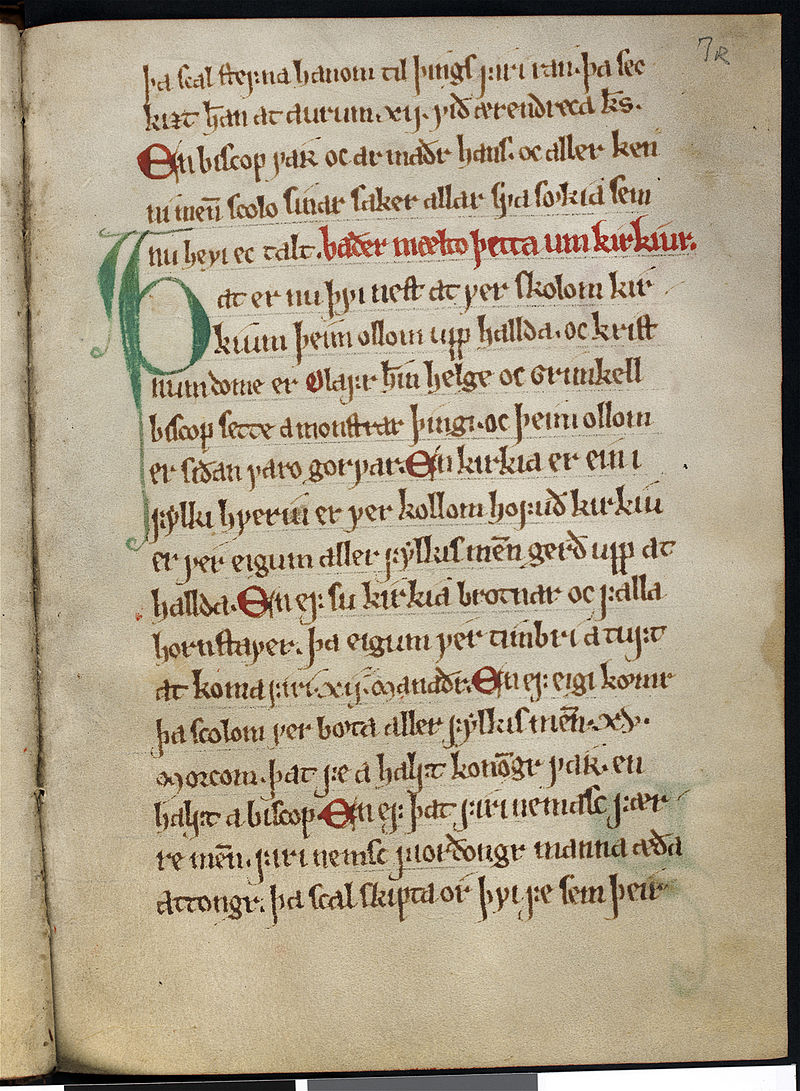 7R
þa scal stefna hanom til þings firi ran. þa sec
kizt h̅an at aurum .xij. við ærendreca k̅s.
En biscop var oc ar maðr hans. oc aller ken
ni men̅ scolo sinar saker allar sva sokia sem
nu hevi ec talt. baðer mælto þetta um kirkiur.
Þat er nu þvi nest at ver skolom kir
kium þeim ollom upp hallda. oc krist
num dome er Olafr hin̅ helge oc Grimkell
biscop sette a monstrar þingi. oc þeim ollom
er siðan varo gorvar. En kirkia er ein i
fylki hveriu er ver kollom hofuð kirkiu
er ver eigum aller fylkis men̅ gerð upp at
hallda. En ef su kirkia brotnar oc falla
hornstaver. þa eigum ver timbri a tuft
at koma firi .xij. manaðr. En ef eigi komr
þa scolom ver bota aller fylkis men̅ .xv.
morcom. þat fe a halft konongr var. en
halft a biscop. En ef þat firi nemasc fær
re men̅. firi nemsc fiorðongr manna æða
attongr. þa scal skipta or þvi fe sem þeir